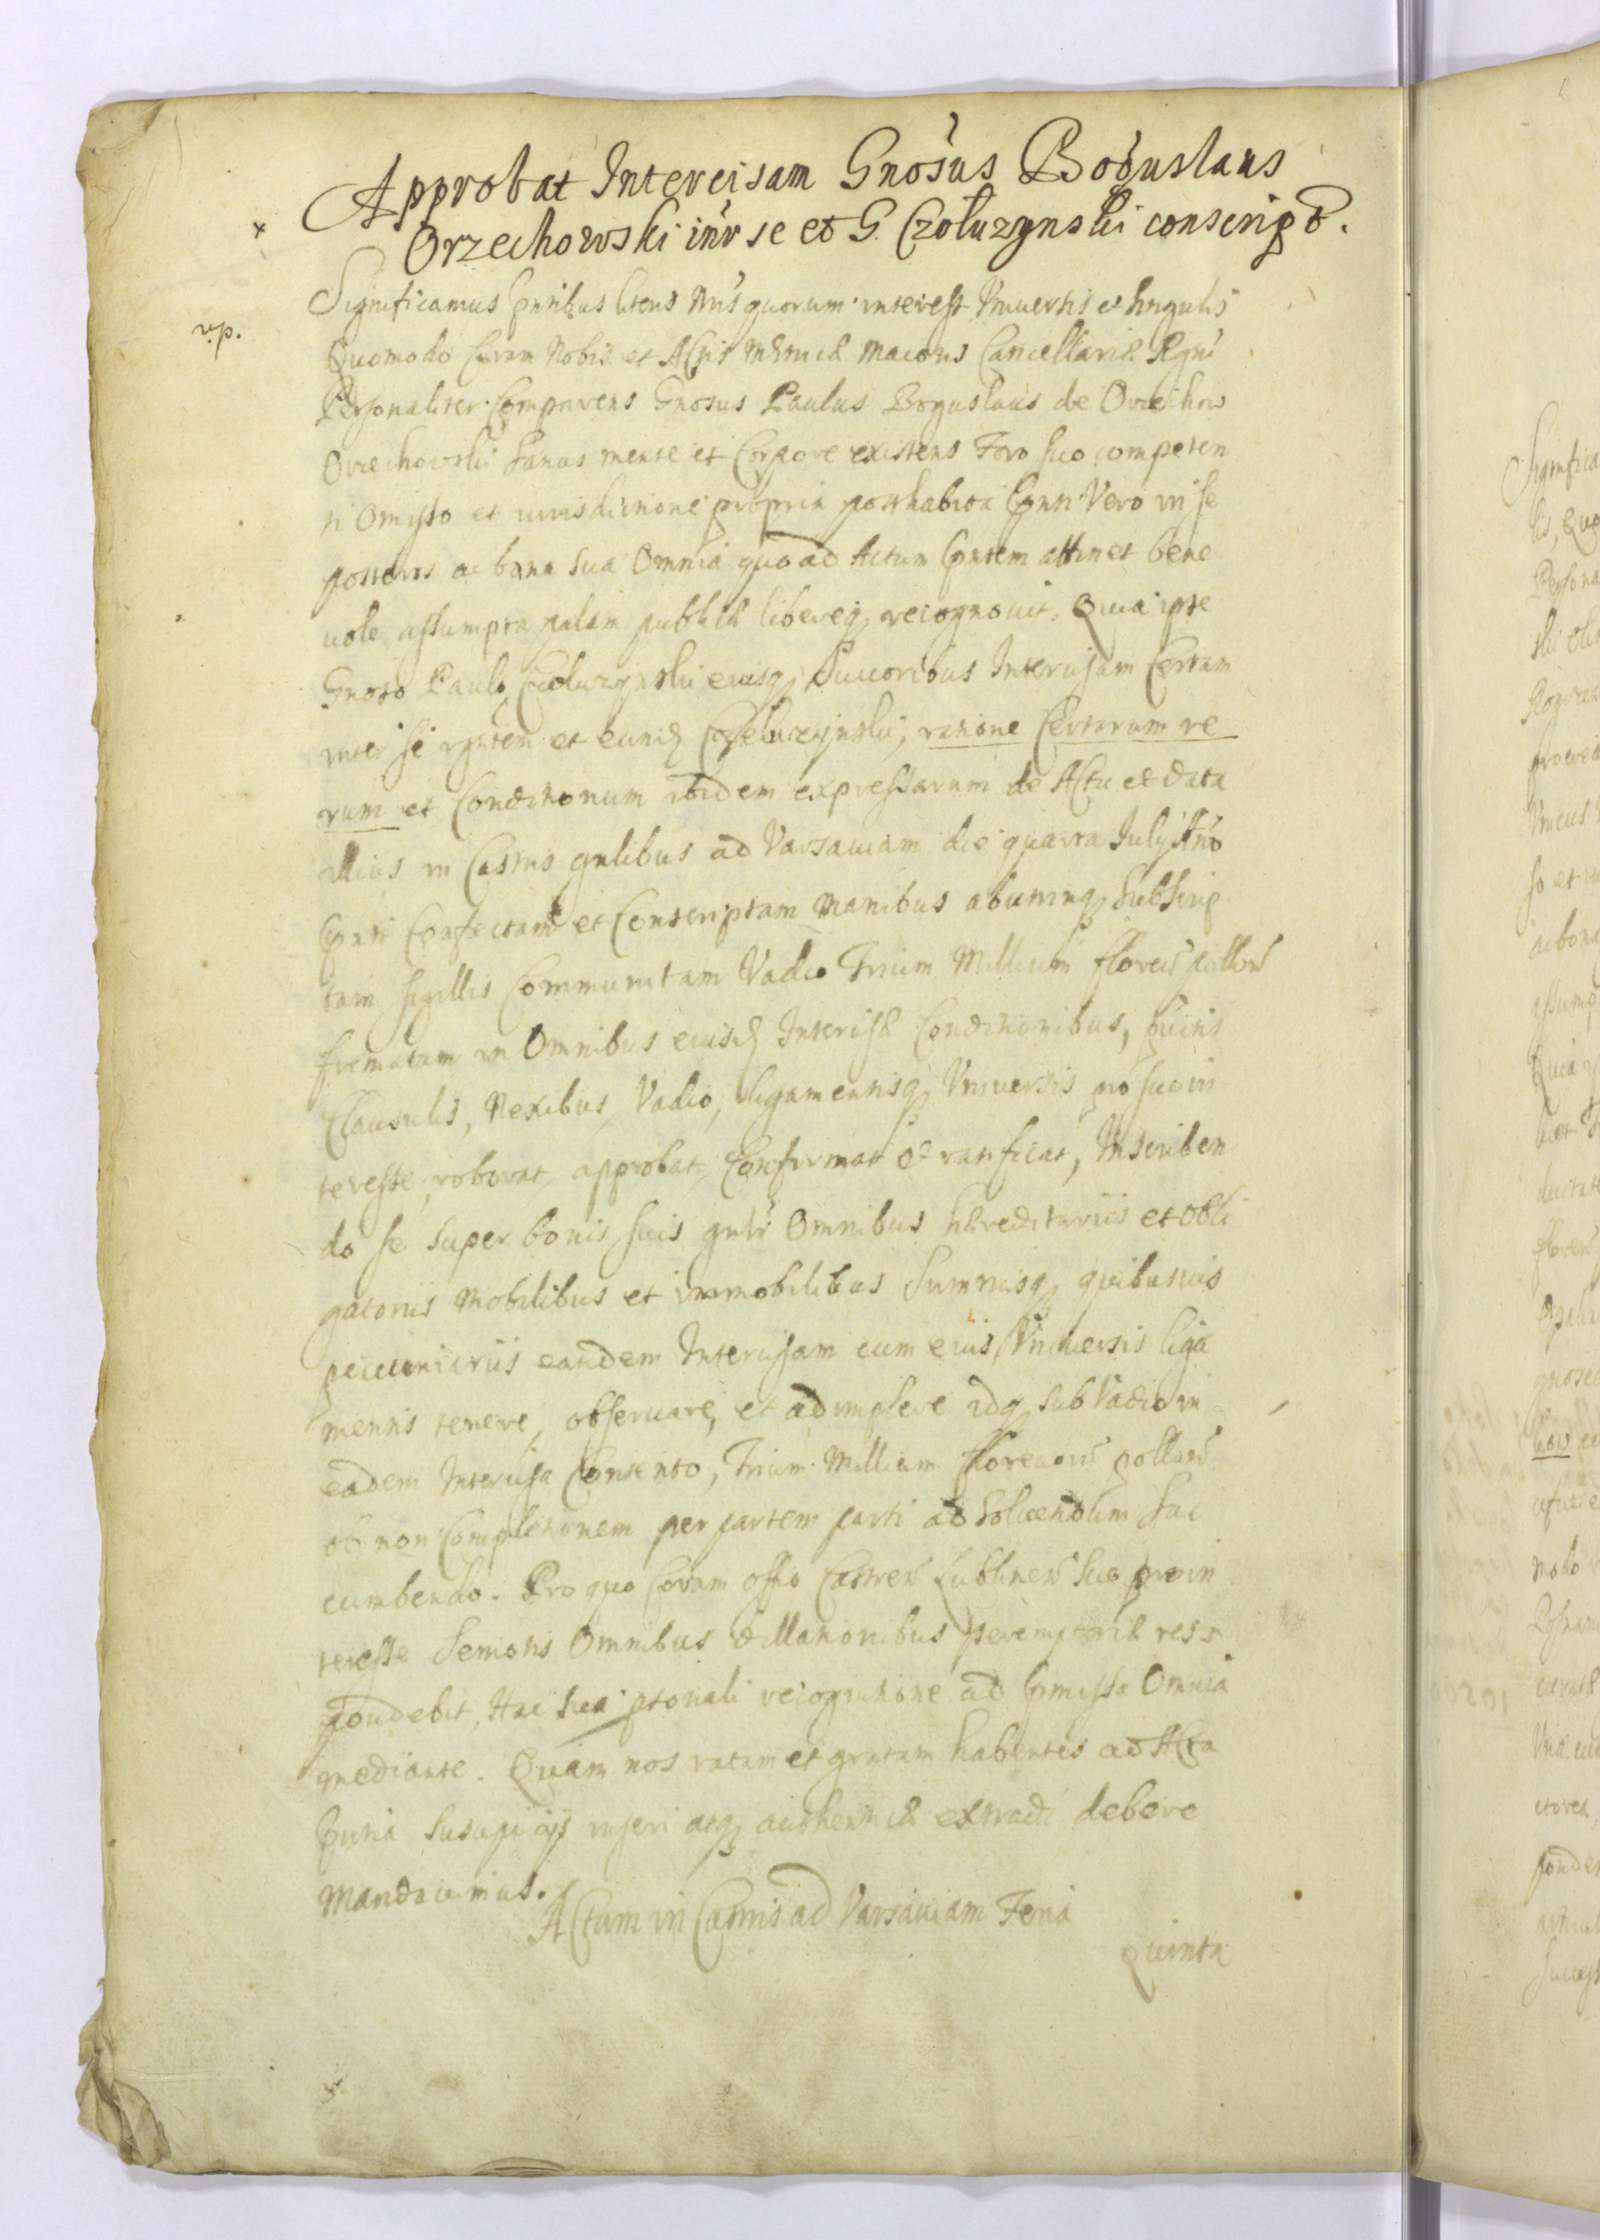 Approbat Intercisam Gnosus Boguslaus
Orzechowski inr se et G. Czoluzynski conscript.
Significamus pntibus literis Nris quorum interest Vniuersis et singulis
v.p.
Quomodo Coram Nobis et Actis Metricae Maioris Cancellariae Regni
Personaliter Comparens Gnosus Paulus Boguslaus de Orzechow
Orzechowski Sanus mente et Corpore existens Foro suo competen
ti Omisso et iurisdictione propria posthabita Pnti Vero in se
posteros ac bona sua Omnia quo ad Actum Pntem attinet bene
uole assumpta palam publice libereq recognouit. Quia ipse
Gnoso Paulo Czoluzynski eiusq Succoribus Intercisam Certam
inter se rgntem et eund Czoluzynski, ratione Certarum re
rum et Conditionum ibidem expressarum de Actu et data
illius in Castris gnlibus ad Varsauiam die quarta Iulij Ano
Pnti Confectam et Conscriptam Manibus abutrinq Subscrip
tam sigillis Communitam Vadio Trium Millium floren pollor
firmatam in Omnibus eiusd Intercisae Conditionibus, Punctis
Clausulis, Nexibus, Vadio, ligamentisq Vniuersis pro suo in
teresse roborat, approbat, Confirmat et ratificat, Inscriben
do se super bonis suis gnlr Omnibus haereditariis et Obli
gatoriis Mobilibus et immobilibus Summisq quibusuis
pecuniariis eandem Intercisam cum eius Vniuersis liga
mentis tenere, obseruare, et adimplere idq sub Vadio in
eadem Intercisa Contento, Trium Millium florenor pollor
ob non Completionem per partem parti ad Soluendum suc
cumbendo. Pro quo Coram offo Castren Lublinen suo pro in
teresse Semotis Omnibus dillationibus peremptorie res
pondebit, Hac sua psonali recognitione ad Pmissa Omnia
mediante. Quam nos ratam et gratam habentes ad Acta
Pntia Suscipi ijs inseri atq authentice extradi debere
Mandauimus.
Actum in Castris ad Varsauiam Feria
quinta